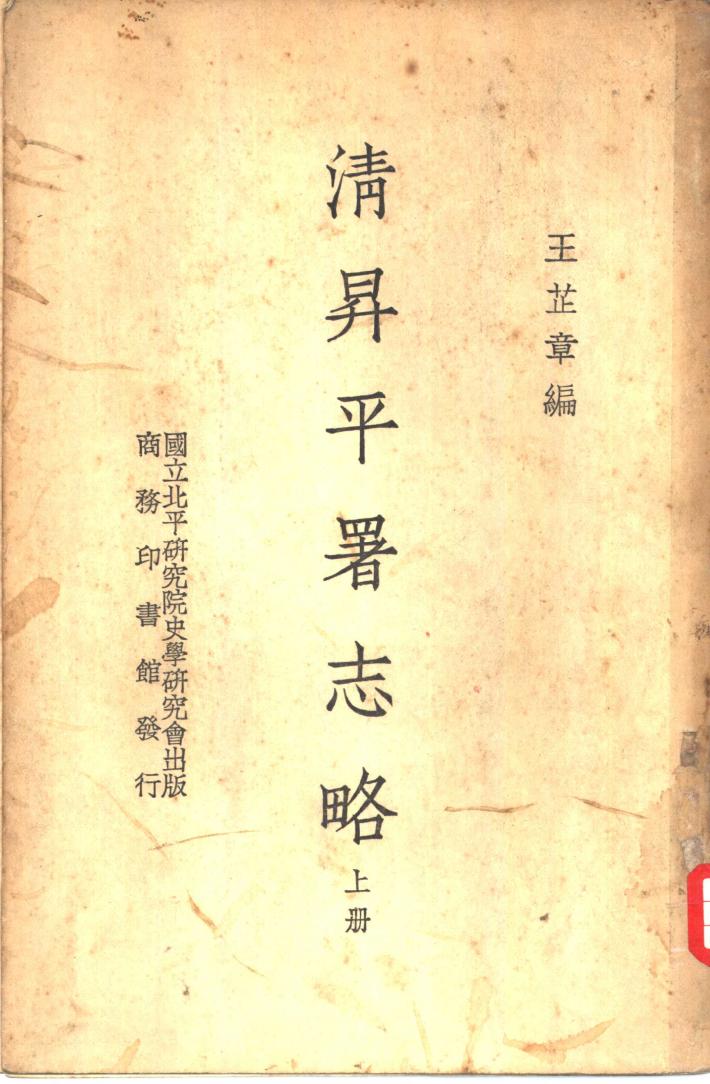 王芷章編
清昇平署志略
上册
國立北平硏究院史學硏究會出版
商務印書館發行